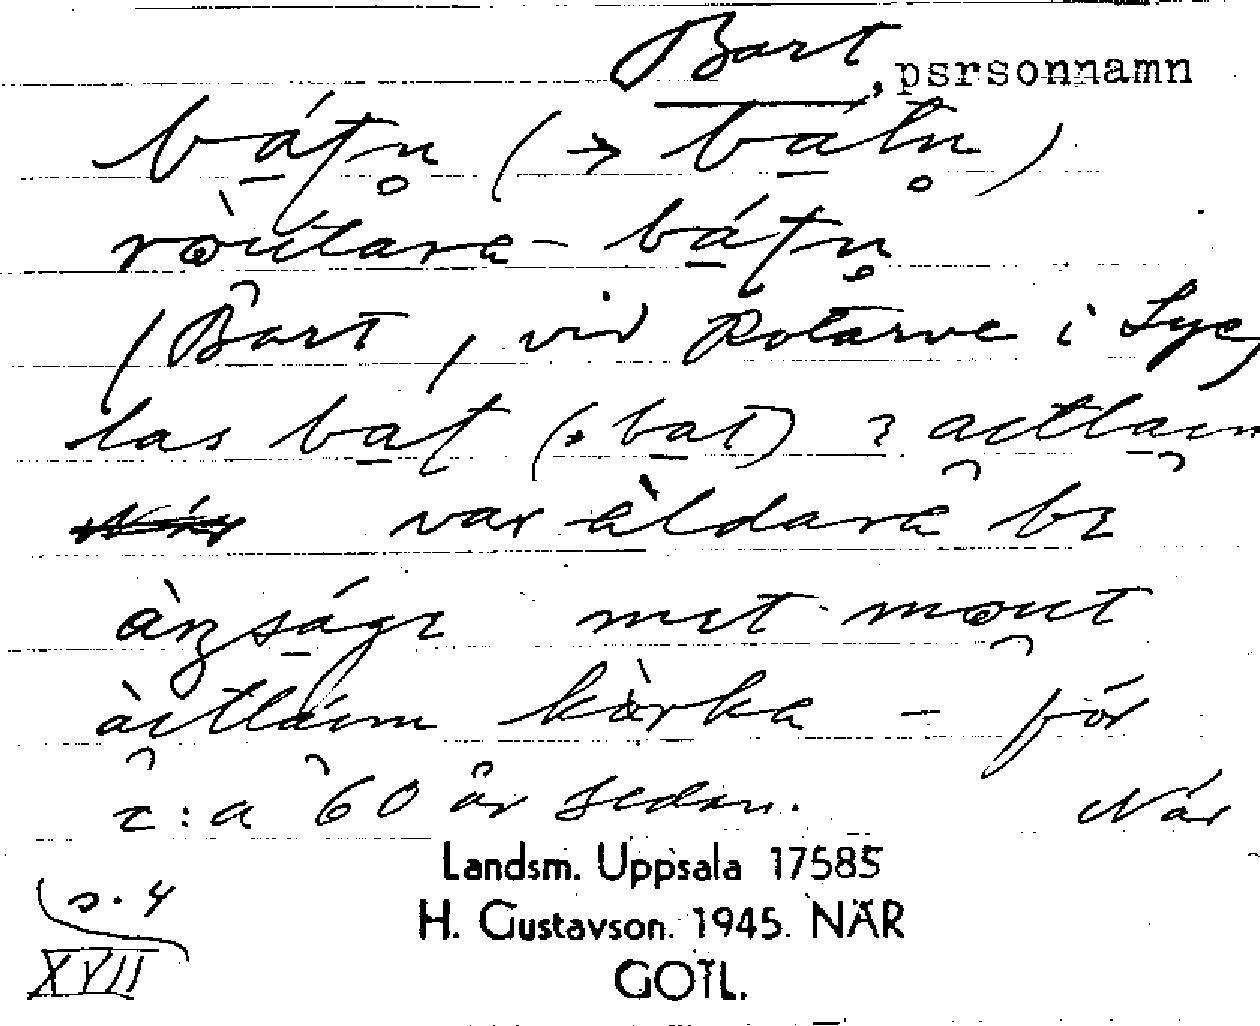 Bart, psrsonnamn
bát̩n̥ (→ bátn̥)
ròutara - bátn̥
(Bart, vid Rotarve i Lye)
las bat (→ bat) 
var àldara bɛ
met mout
kàrka - för
c:a 60 år sedan. När
Landsm. Uppsala 17585
H. Gustavson. 1945. NÄR
GOTL.
s. 4
XVII